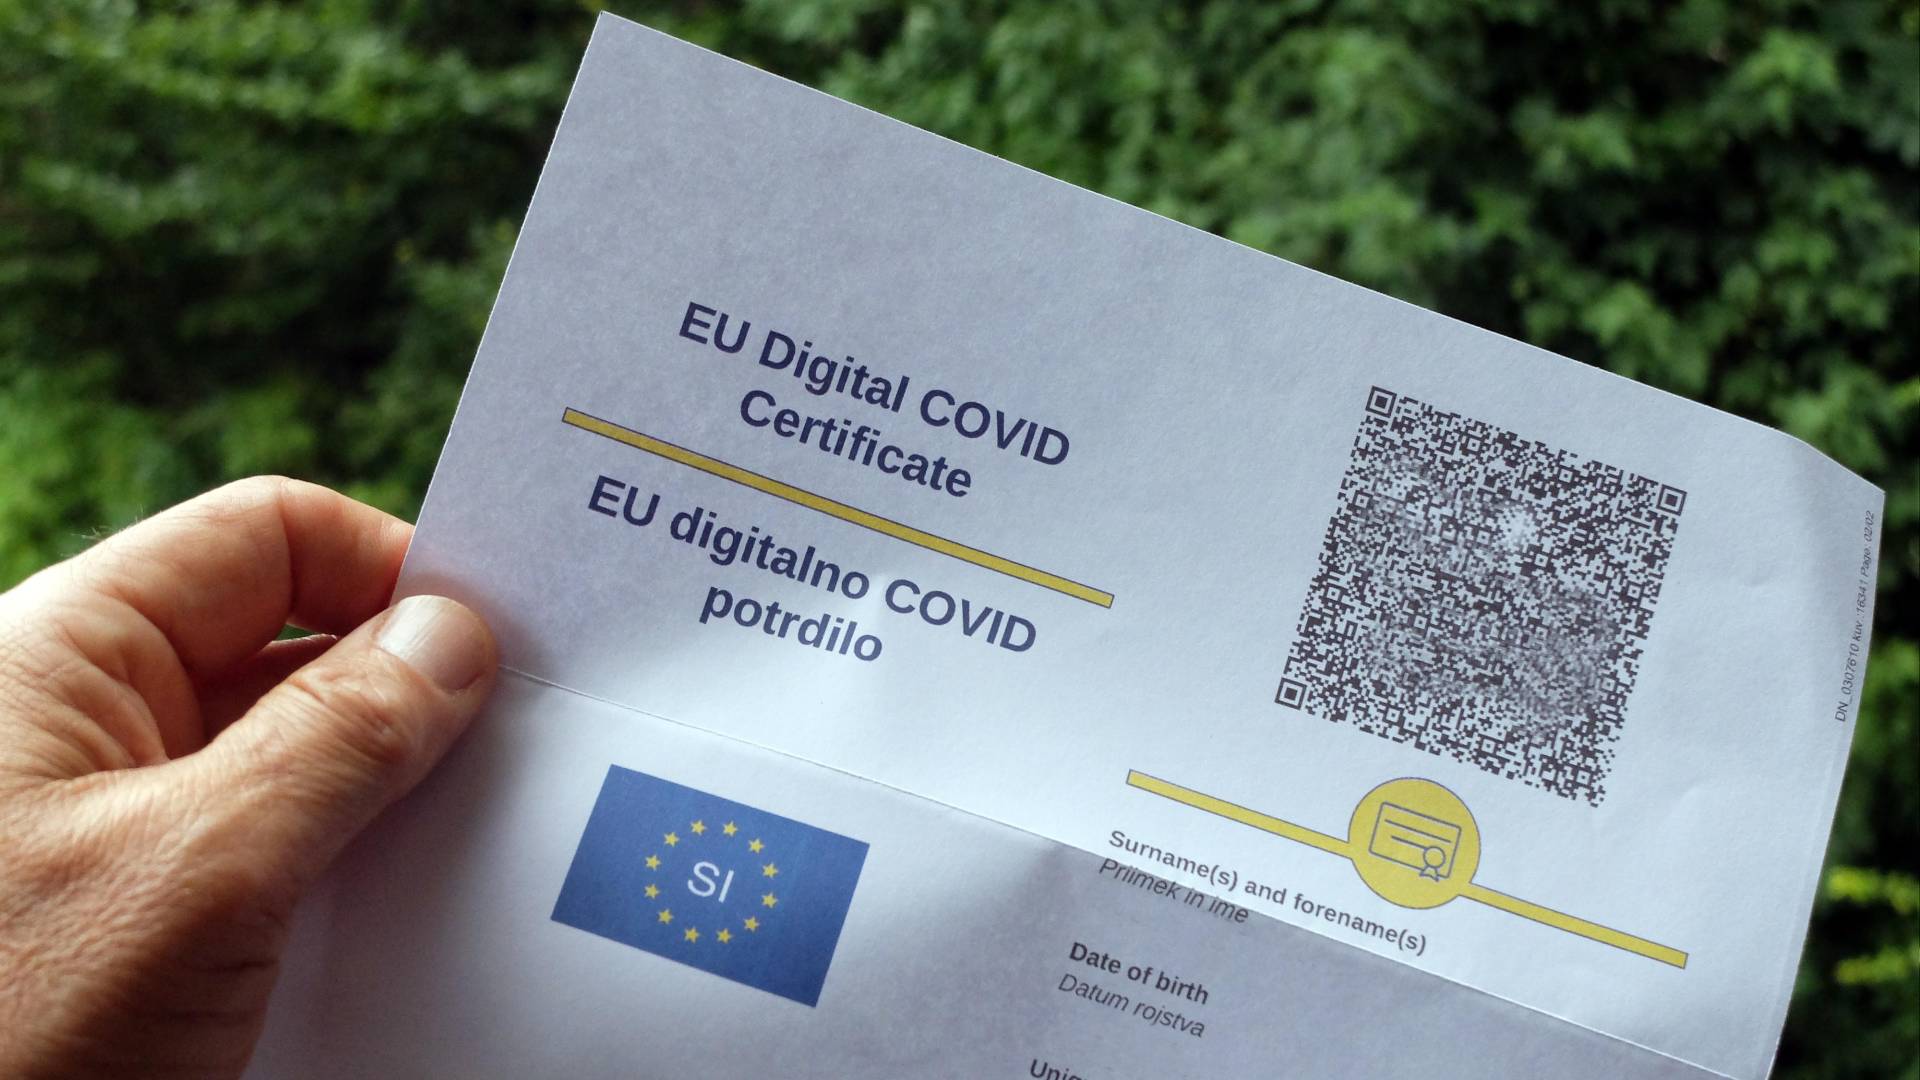 EU Digital COVID
Certificate
EU digitalno COVID
potrdilo
DN_0307610 kuv.:16341 Page: 02/02
SI
Surname(s) and forename(s)
Priimek in ime
Date of birth
Datum rojstva